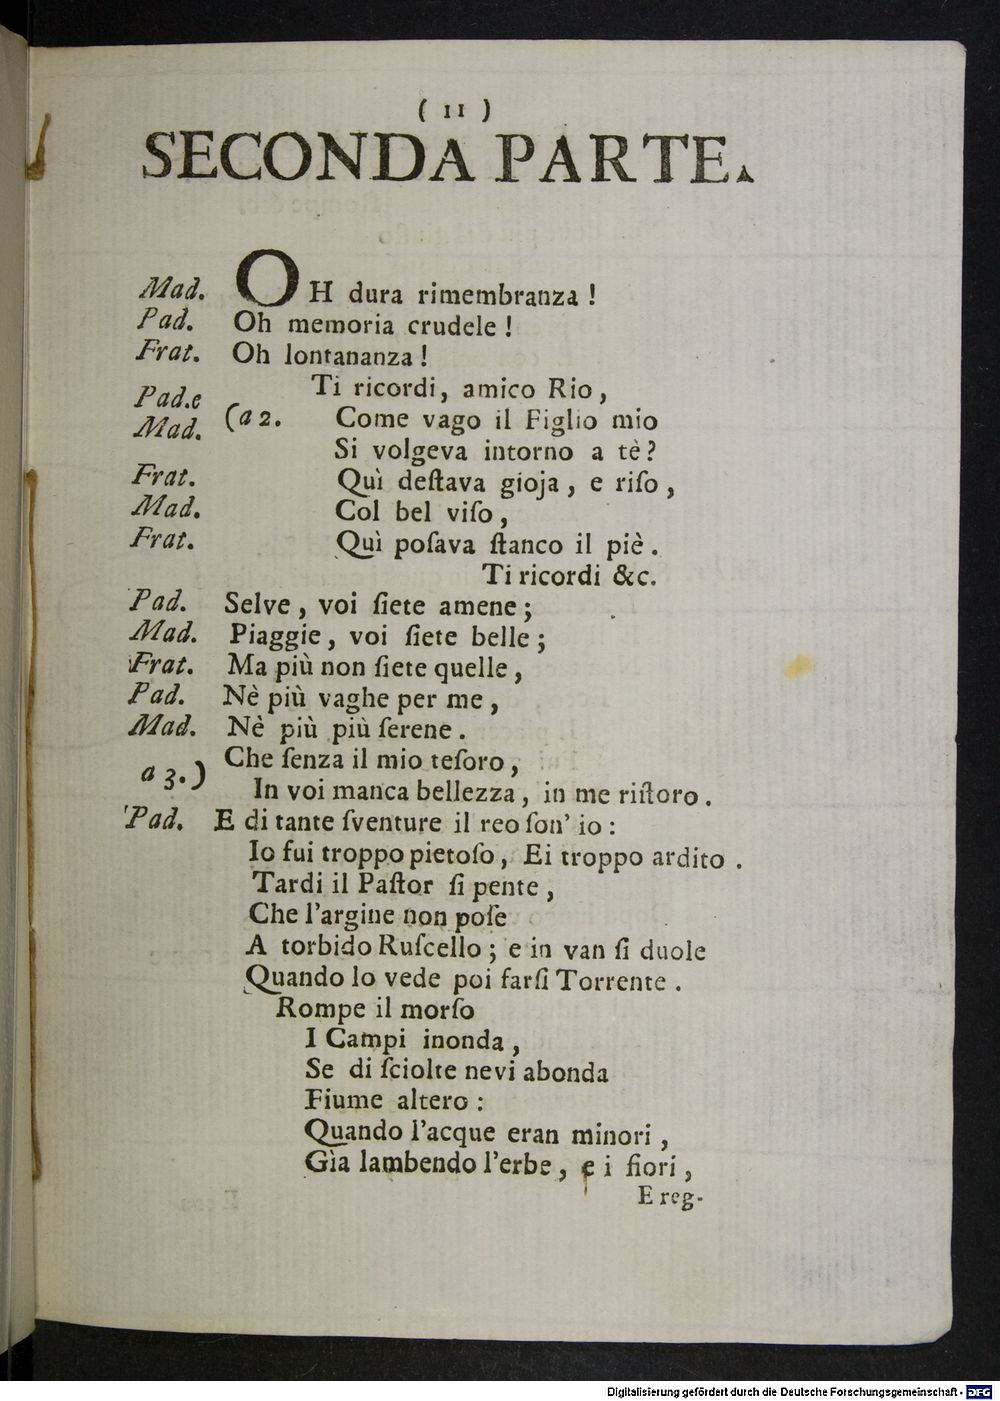 ( 11 )
SECONDA PARTE.
Mad. OH dura rimembranza !
Pad. Oh memoria crudele !
Frat. Oh lontananza !
Ti ricordi, amico Rio,
Pad.e (a 2. Come vago il Figlio mio
Mad. Si volgeva intorno a tè?
Frat. Quì deſtava gioja, e riſo,
Mad. Col bel viſo,
Frat. Quì poſava ſtanco il piè.
Ti ricordi &c.
Pad. Selve, voi ſiete amene;
Mad. Piaggie, voi ſiete belle;
Frat. Ma più non ſiete quelle,
Pad. Nè più vaghe per me,
Mad. Nè più più ſerene.
a 3.) Che ſenza il mio teſoro,
In voi manca bellezza, in me riſtoro.
Pad. E di tante ſventure il reo ſon' io:
Io fui troppo pietoſo, Ei troppo ardito.
Tardi il Paſtor ſi pente,
Che l'argine non poſe
A torbido Ruſcello; e in van ſi duole
Quando lo vede poi farſi Torrente.
Rompe il morſo
I Campi inonda,
Se di ſciolte nevi abonda
Fiume altero:
Quando l'acque eran minori,
Gìa lambendo l'erbe, e i fiori,
E reg-
Digitalisierung gefördert durch die Deutsche Forschungsgemeinschaft - DFG